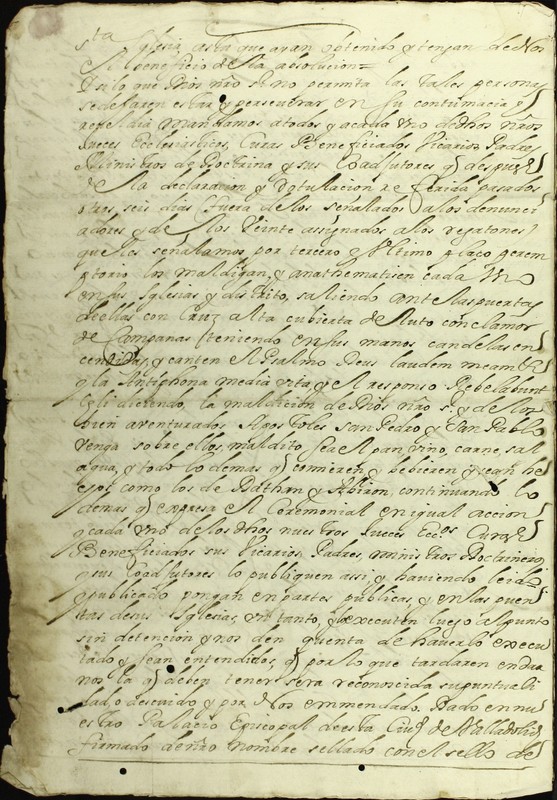 sta Iglesia asta que ayan obtenido y tengan de Nos
el beneficio de la absolucion=
Y si lo que Dios nro Sr no permita las tales personas
se dejaren estar y perseverar en su contumacia y
reveldia mandamos a todos y a cada uno de dhos nros
Jueces Ecclesiasticos, Curas Beneficiados Vicarios Padres
Ministros de Doctrina y sus Coadjutores q despues
de la declaracion y rotulacion referida pasados
otros seis dias (fuera de los señalados) a los denunci
adores y de los veinte assignados a los regatones
que les señalamos por tercero y ultimo plaço perem
ptorio los maldigan, y anathematisen cada uno
en sus Iglesias y distrito, saliendo ante las puertas
de ellas con Cruz alta cubierta de luto con clamor
de Campanas (teniendo en sus manos candelas en
cendidas, y canten el Psalmo Deus laudem meam &
y la Antiphona media vita, y el responso Revelabunt
Celi diciendo, la maldicion de Dios nro sr y de los
bien aventurados Apostoles san Pedro y San Pablo
venga sobre ellos, maldito sea el pan, vino, carne, sal
agua, y todo lo demas q comieren y bebieren y sean he
chos como los de Dathan y Abiron, continuando lo
demas q expresa el Ceremonial en igual accion
y cada uno de los dhos nuestros Jueces Eccos Curas
Beneficiados sus Vicarios, Padres, ministros Doctrineros
y sus Coadjutores lo publiquen assi, y haviendo leido
y publicado pongan en partes publicas, y en las puer
tas de sus Iglesias, un tanto, y lo executen luego al punto
sin detencion y nos den quenta de haverlo execu
tado y sean entendidos, q por lo que tardaren en dar
nos la q deben tener sera reconocida su puntuali
dad, o descuido y por Nos emmendado. Dado en nu
estro Palacio Episcopal de esta Ciud de Valladolid
firmado de nro nombre sellado con el sello de